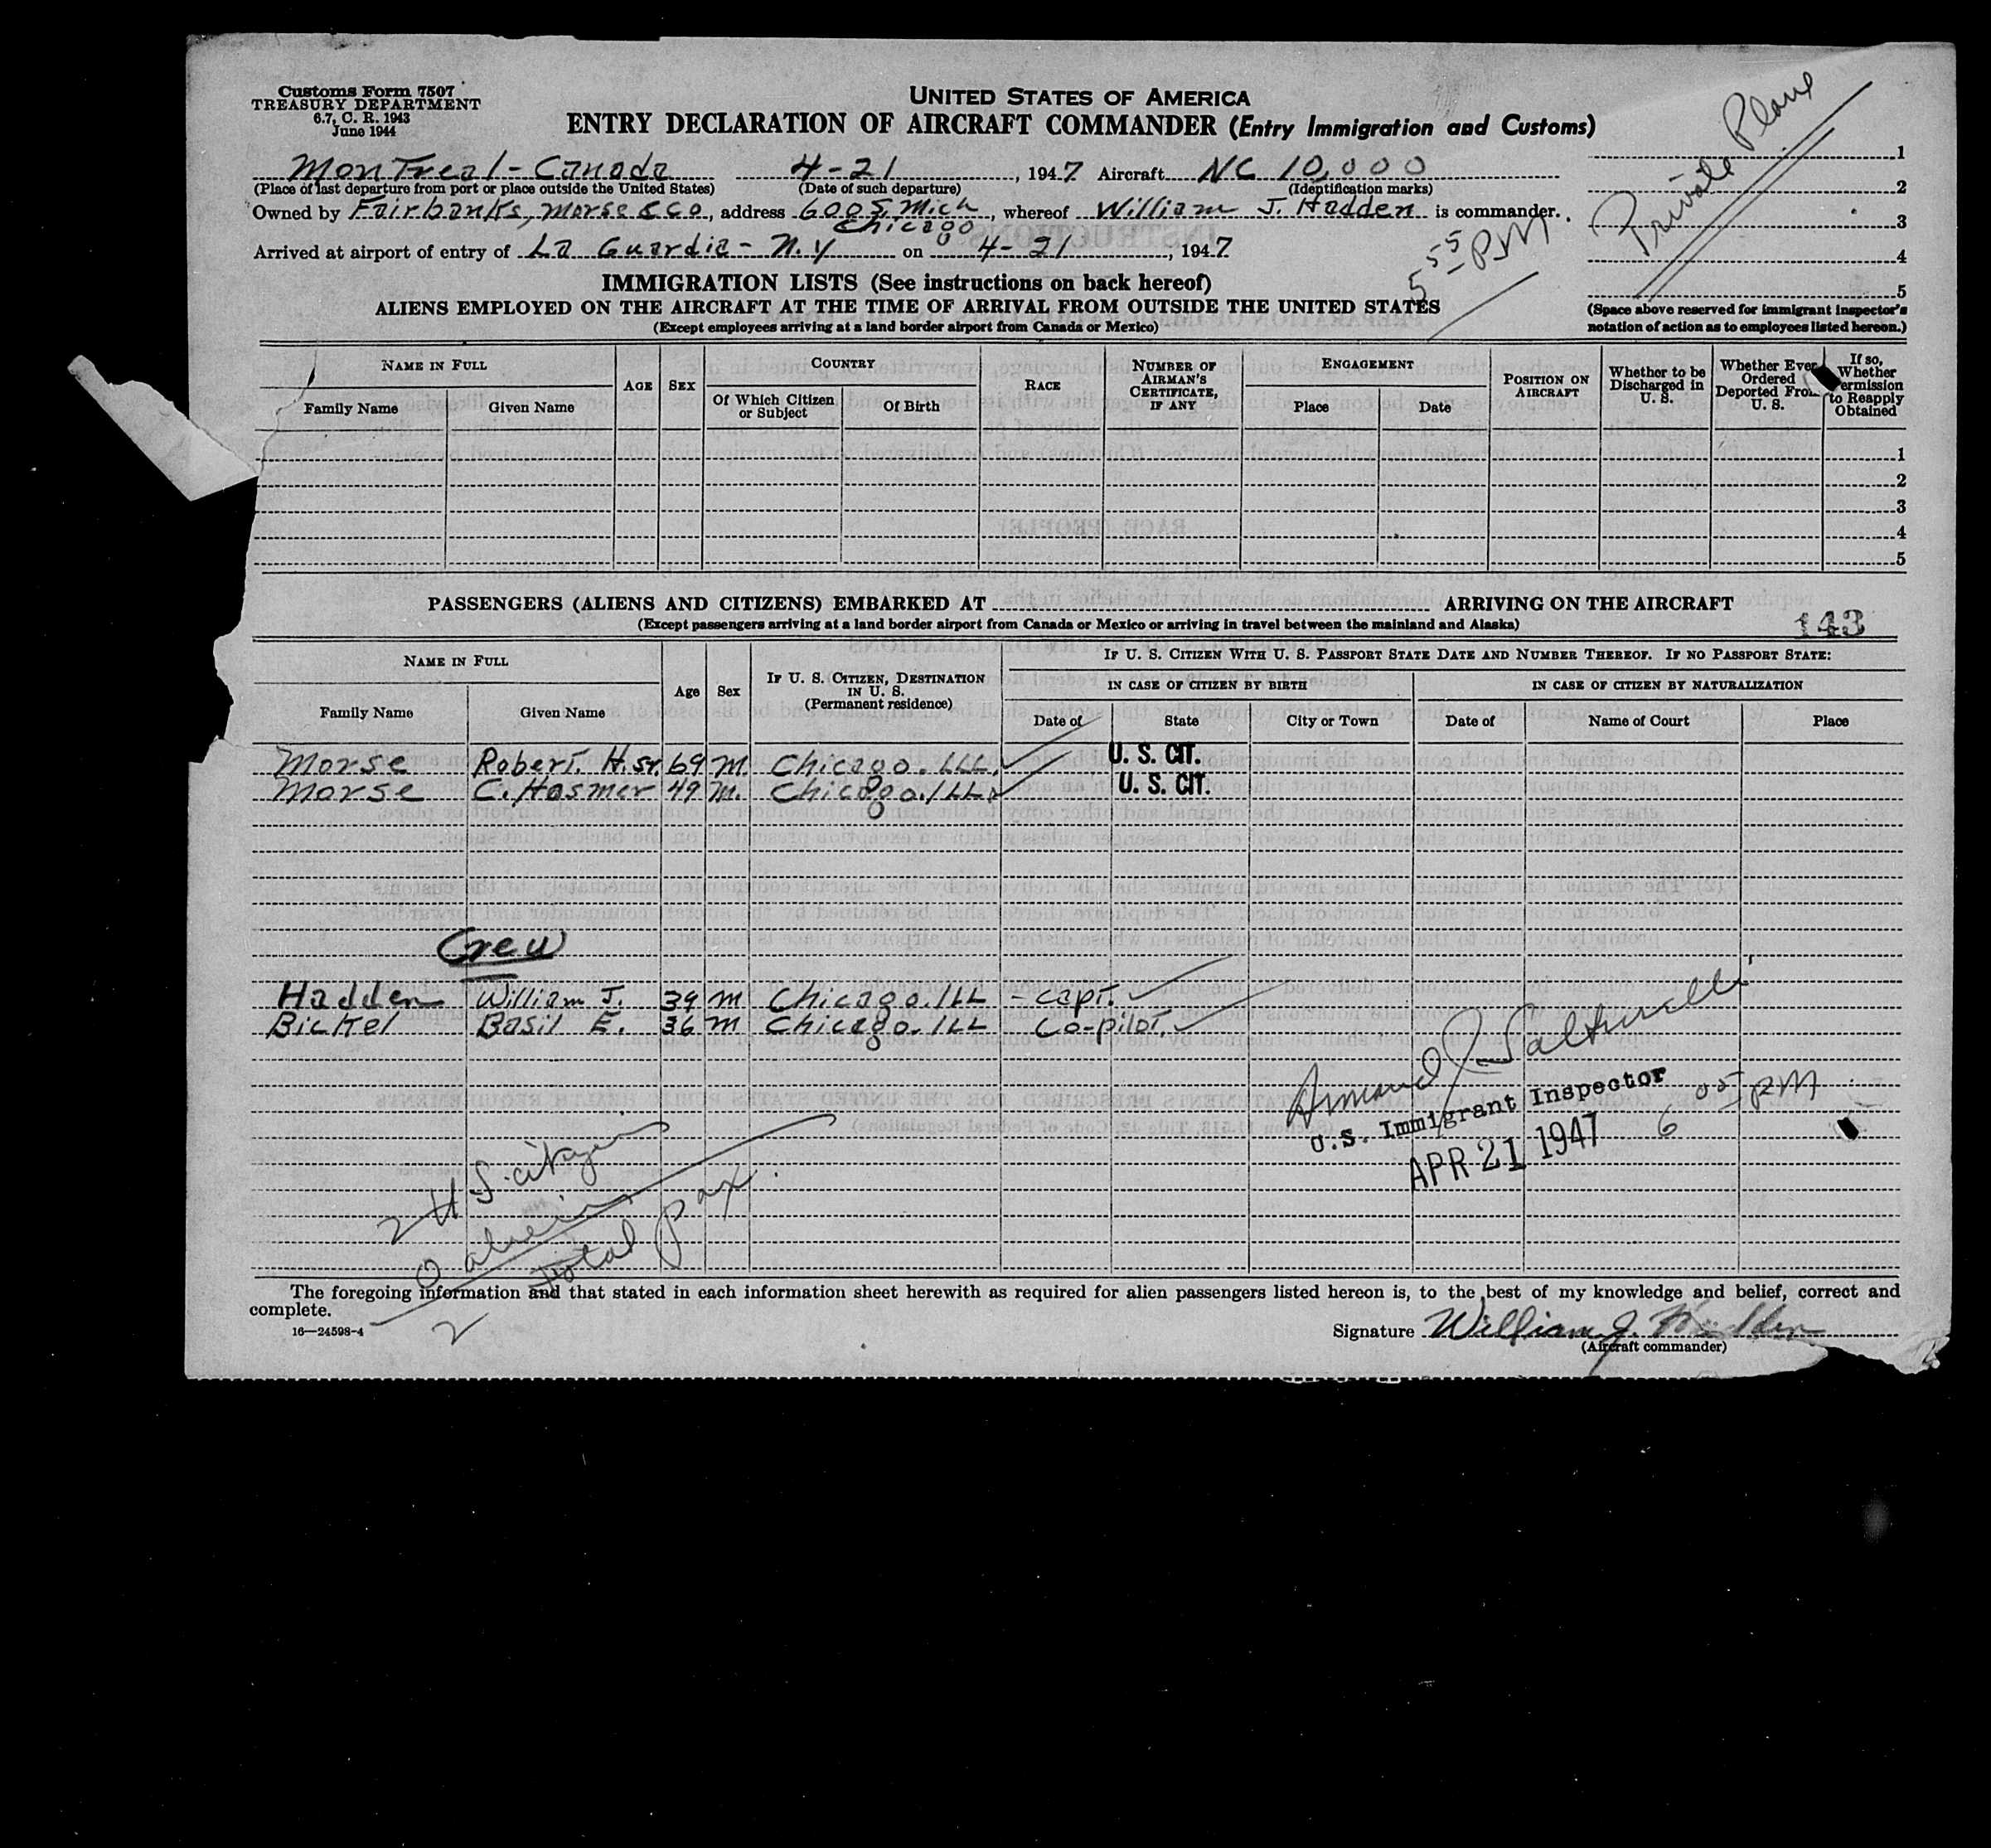 Customs Form 7507
TREASURY DEPARTMENT
6.7, C. R. 1943
June 1944
UNITED STATES OF AMERICA
ENTRY DECLARATION OF AIRCRAFT COMMANDER (Entry Immigration and Customs)
Private Plane
Montreal - Canada 4-21, 1947 Aircraft NC 10,000
(Place of last departure from port or place outside the United States) (Date of such departure) (Identification marks)
Owned by Fairbanks, Morse & Co, address 600 S. Mich Chicago, whereof William J. Hadden is commander.
Arrived at airport of entry of La Guardia - N.Y on 4-21, 1947
5 55 PM
1
2
3
4
5
(Space above reserved for immigrant inspector's
notation of action as to employees listed hereon.)
IMMIGRATION LISTS (See instructions on back hereof)
ALIENS EMPLOYED ON THE AIRCRAFT AT THE TIME OF ARRIVAL FROM OUTSIDE THE UNITED STATES
(Except employees arriving at a land border airport from Canada or Mexico)
NAME IN FULL
Family Name Given Name
AGE SEX
COUNTRY
Of Which Citizen or Subject Of Birth
RACE
NUMBER OF AIRMAN'S CERTIFICATE, IF ANY
ENGAGEMENT
Place Date
POSITION ON AIRCRAFT
Whether to be Discharged in U. S.
Whether Ever Ordered Deported From U. S.
If so, Whether ermission to Reapply Obtained
1
2
3
4
5
PASSENGERS (ALIENS AND CITIZENS) EMBARKED AT ARRIVING ON THE AIRCRAFT
(Except passengers arriving at a land border airport from Canada or Mexico or arriving in travel between the mainland and Alaska)
143
NAME IN FULL
Family Name Given Name
Age Sex
IF U. S. CITIZEN, DESTINATION IN U. S. (Permanent residence)
IF U. S. CITIZEN WITH U. S. PASSPORT STATE DATE AND NUMBER THEREOF. IF NO PASSPORT STATE:
IN CASE OF CITIZEN BY BIRTH IN CASE OF CITIZEN BY NATURALIZATION
Date of State City or Town Date of Name of Court Place
Morse Robert. H. Sr. 69 M. Chicago. ILL. U. S. CIT.
Morse C. Hosmer 49 M. Chicago. ILL. U. S. CIT.
Crew
Hadden William J. 39 M Chicago. ILL - capt.
Bickel Basil E. 36 M Chicago. ILL co-pilot.
Armand J.
U.S. Immigrant Inspector
APR 21 1947
6 05 PM
2 U S. citizens
0 aliens
2 total pax.
The foregoing information and that stated in each information sheet herewith as required for alien passengers listed hereon is, to the best of my knowledge and belief, correct and
complete.
16—24598-4
Signature William J. Hadden
(Aircraft commander)